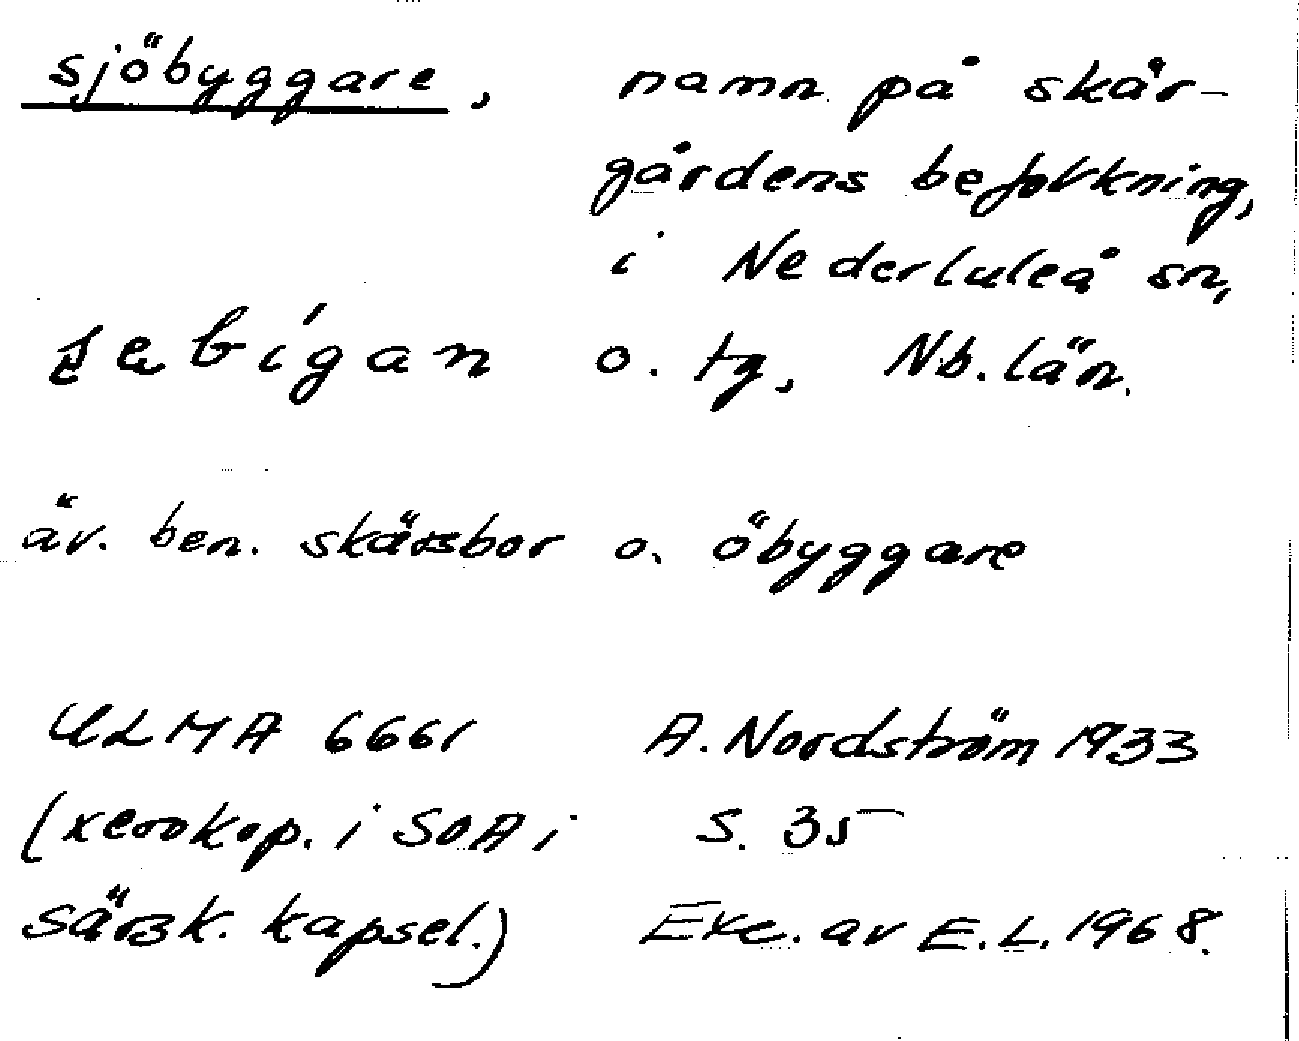 sjöbyggare, namn på skär-
gårdens befolkning,
i Nederluleå sn,
o. tg, Nb. län.
äv. ben. skärsbor o. öbyggare
ULMA 6661 A. Nordström 1933
(xerokop. i SOA i S. 35
särsk. kapsel.) Exc. av E.L. 1968.